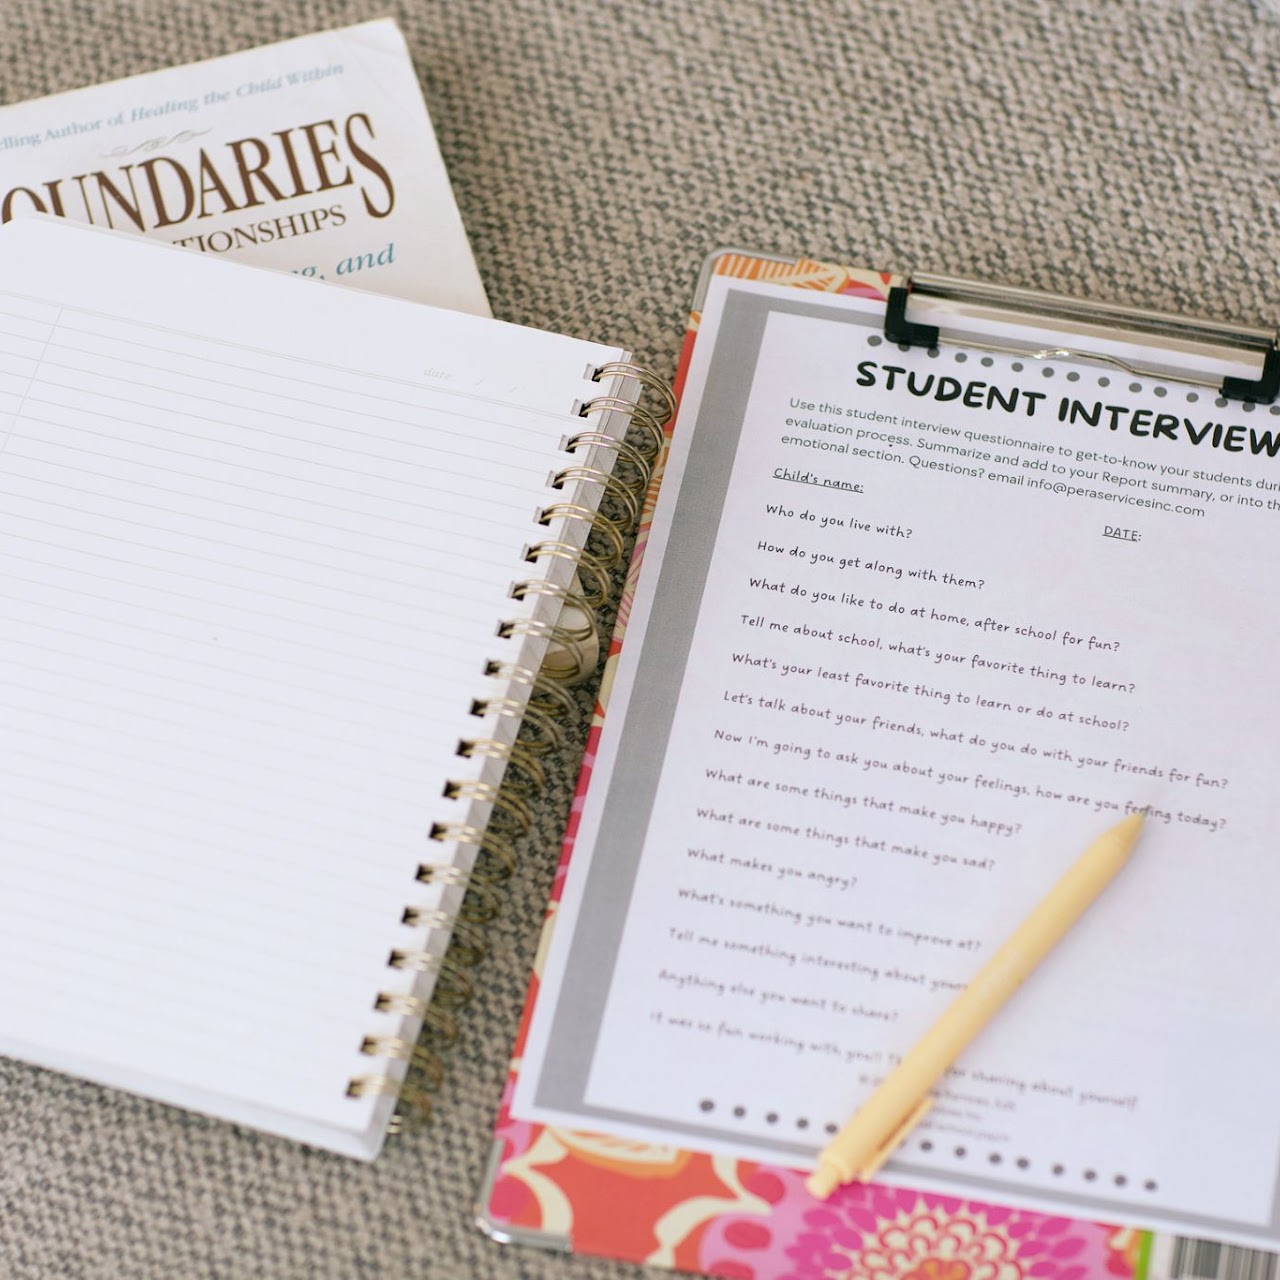 elling Author of Healing the Child Within
OUNDARIES
TIONSHIPS
g, and
date / /
STUDENT INTERVIEW
Use this student interview questionnaire to get-to-know your students duri
evaluation process. Summarize and add to your Report summary, or into th
emotional section. Questions? email info@peraservicesinc.com
Child's name:
DATE:
Who do you live with?
How do you get along with them?
What do you like to do at home, after school for fun?
Tell me about school, what's your favorite thing to learn?
What's your least favorite thing to learn or do at school?
Let's talk about your friends, what do you do with your friends for fun?
Now I'm going to ask you about your feelings, how are you feeling today?
What are some things that make you happy?
What are some things that make you sad?
What makes you angry?
What's something you want to improve at?
Tell me something interesting about your
Anything else you want to share?
It was so fun working with you!! for sharing about yourself.